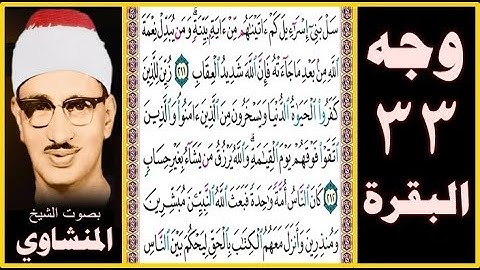 وجه
٣٣
البقرة
سَلْ بَنِىٓ إِسْرَٰٓءِيلَ كَمْ ءَاتَيْنَٰهُم مِّنْ ءَايَةٍۭ بَيِّنَةٍ ۗ وَمَن يُبَدِّلْ نِعْمَةَ
ٱللَّهِ مِنۢ بَعْدِ مَا جَآءَتْهُ فَإِنَّ ٱللَّهَ شَدِيدُ ٱلْعِقَابِ ٢١١ زُيِّنَ لِلَّذِينَ
كَفَرُوا۟ ٱلْحَيَوٰةُ ٱلدُّنْيَا وَيَسْخَرُونَ مِنَ ٱلَّذِينَ ءَامَنُوا۟ ۘ وَٱلَّذِينَ
ٱتَّقَوْا۟ فَوْقَهُمْ يَوْمَ ٱلْقِيَٰمَةِ ۗ وَٱللَّهُ يَرْزُقُ مَن يَشَآءُ بِغَيْرِ حِسَابٍ
٢١٢ كَانَ ٱلنَّاسُ أُمَّةً وَٰحِدَةً فَبَعَثَ ٱللَّهُ ٱلنَّبِيِّۦنَ مُبَشِّرِينَ
وَمُنذِرِينَ وَأَنزَلَ مَعَهُمُ ٱلْكِتَٰبَ بِٱلْحَقِّ لِيَحْكُمَ بَيْنَ ٱلنَّاسِ
بصوت الشيخ
المنشاوي